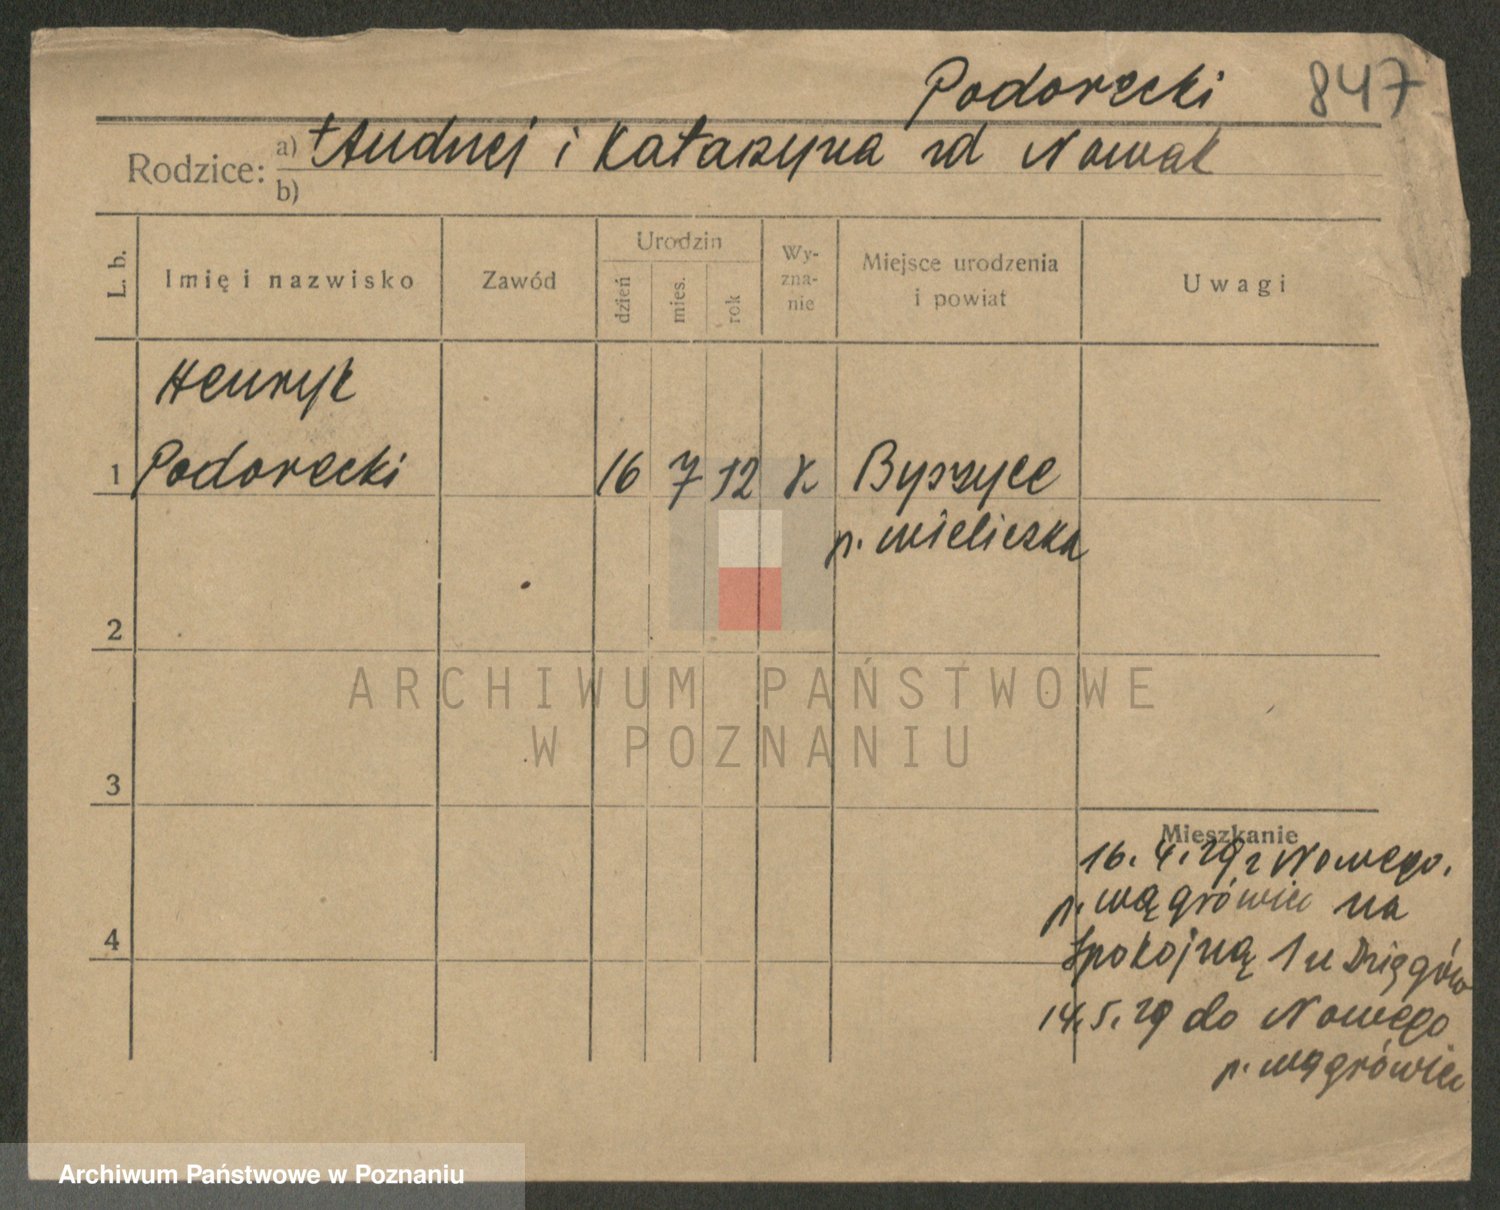 Podorecki 847
Rodzice: a) † Andrzej i Katarzyna zd Nowak
b)
L. b.
Imię i nazwisko
Zawód
Urodzin
dzień
mies.
rok
Wy-
zna-
nie
Miejsce urodzenia
i powiat
Uwagi
Henryk
1 Podorecki 16 7 12 k Byszyce
p. Wieliczka
2
ARCHIWUM PAŃSTWOWE
W POZNANIU
3
Mieszkanie
16. 4. 29 z Nowego.
p. Wągrówiec na
4
Spokojną 1 u
14. 5. 29 do Nowego
p. Wągrówiec
Archiwum Państwowe w Poznaniu